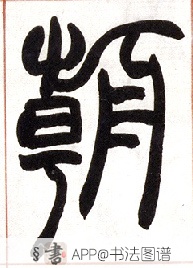 朝
§書 APP@书法图谱